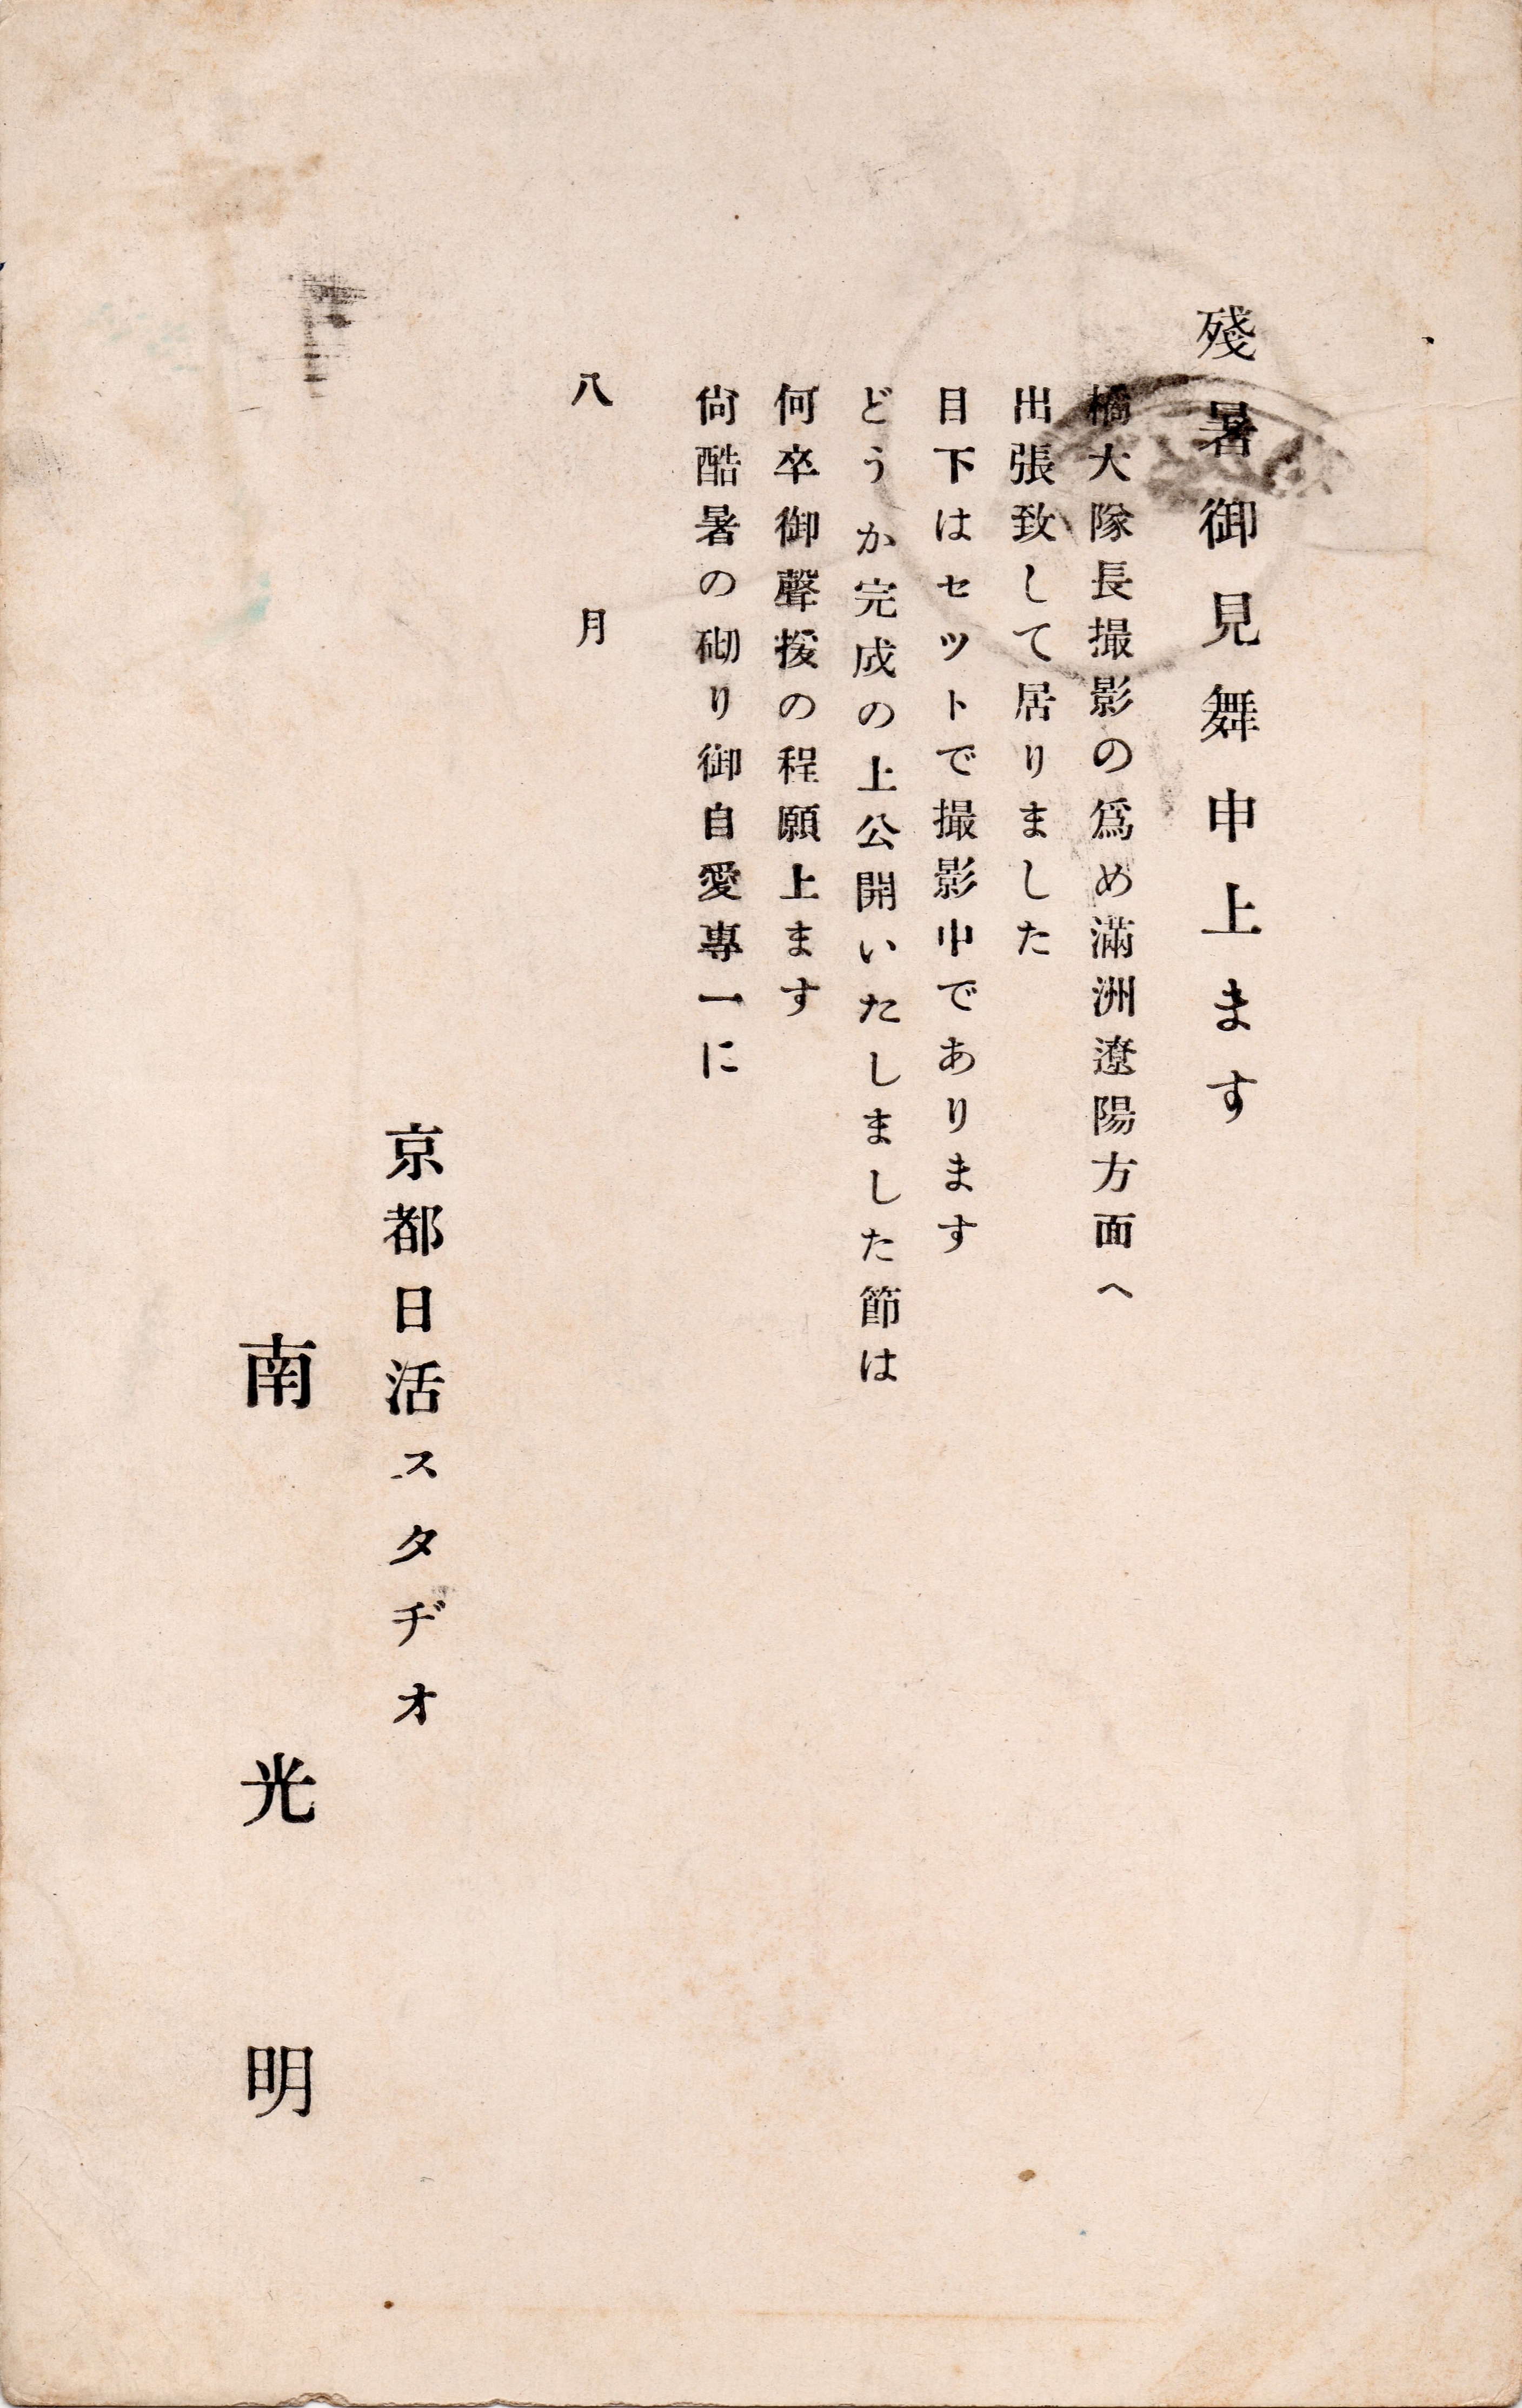 殘暑御見舞申上ます
橘大隊長撮影の爲め滿洲遼陽方面へ
出張致して居りました
目下はセツトで撮影中であります
どうか完成の上公開いたしました節は
何卒御聲援の程願上ます
尙酷暑の砌り御自愛專一に
八月
京都日活スタヂオ
南光明